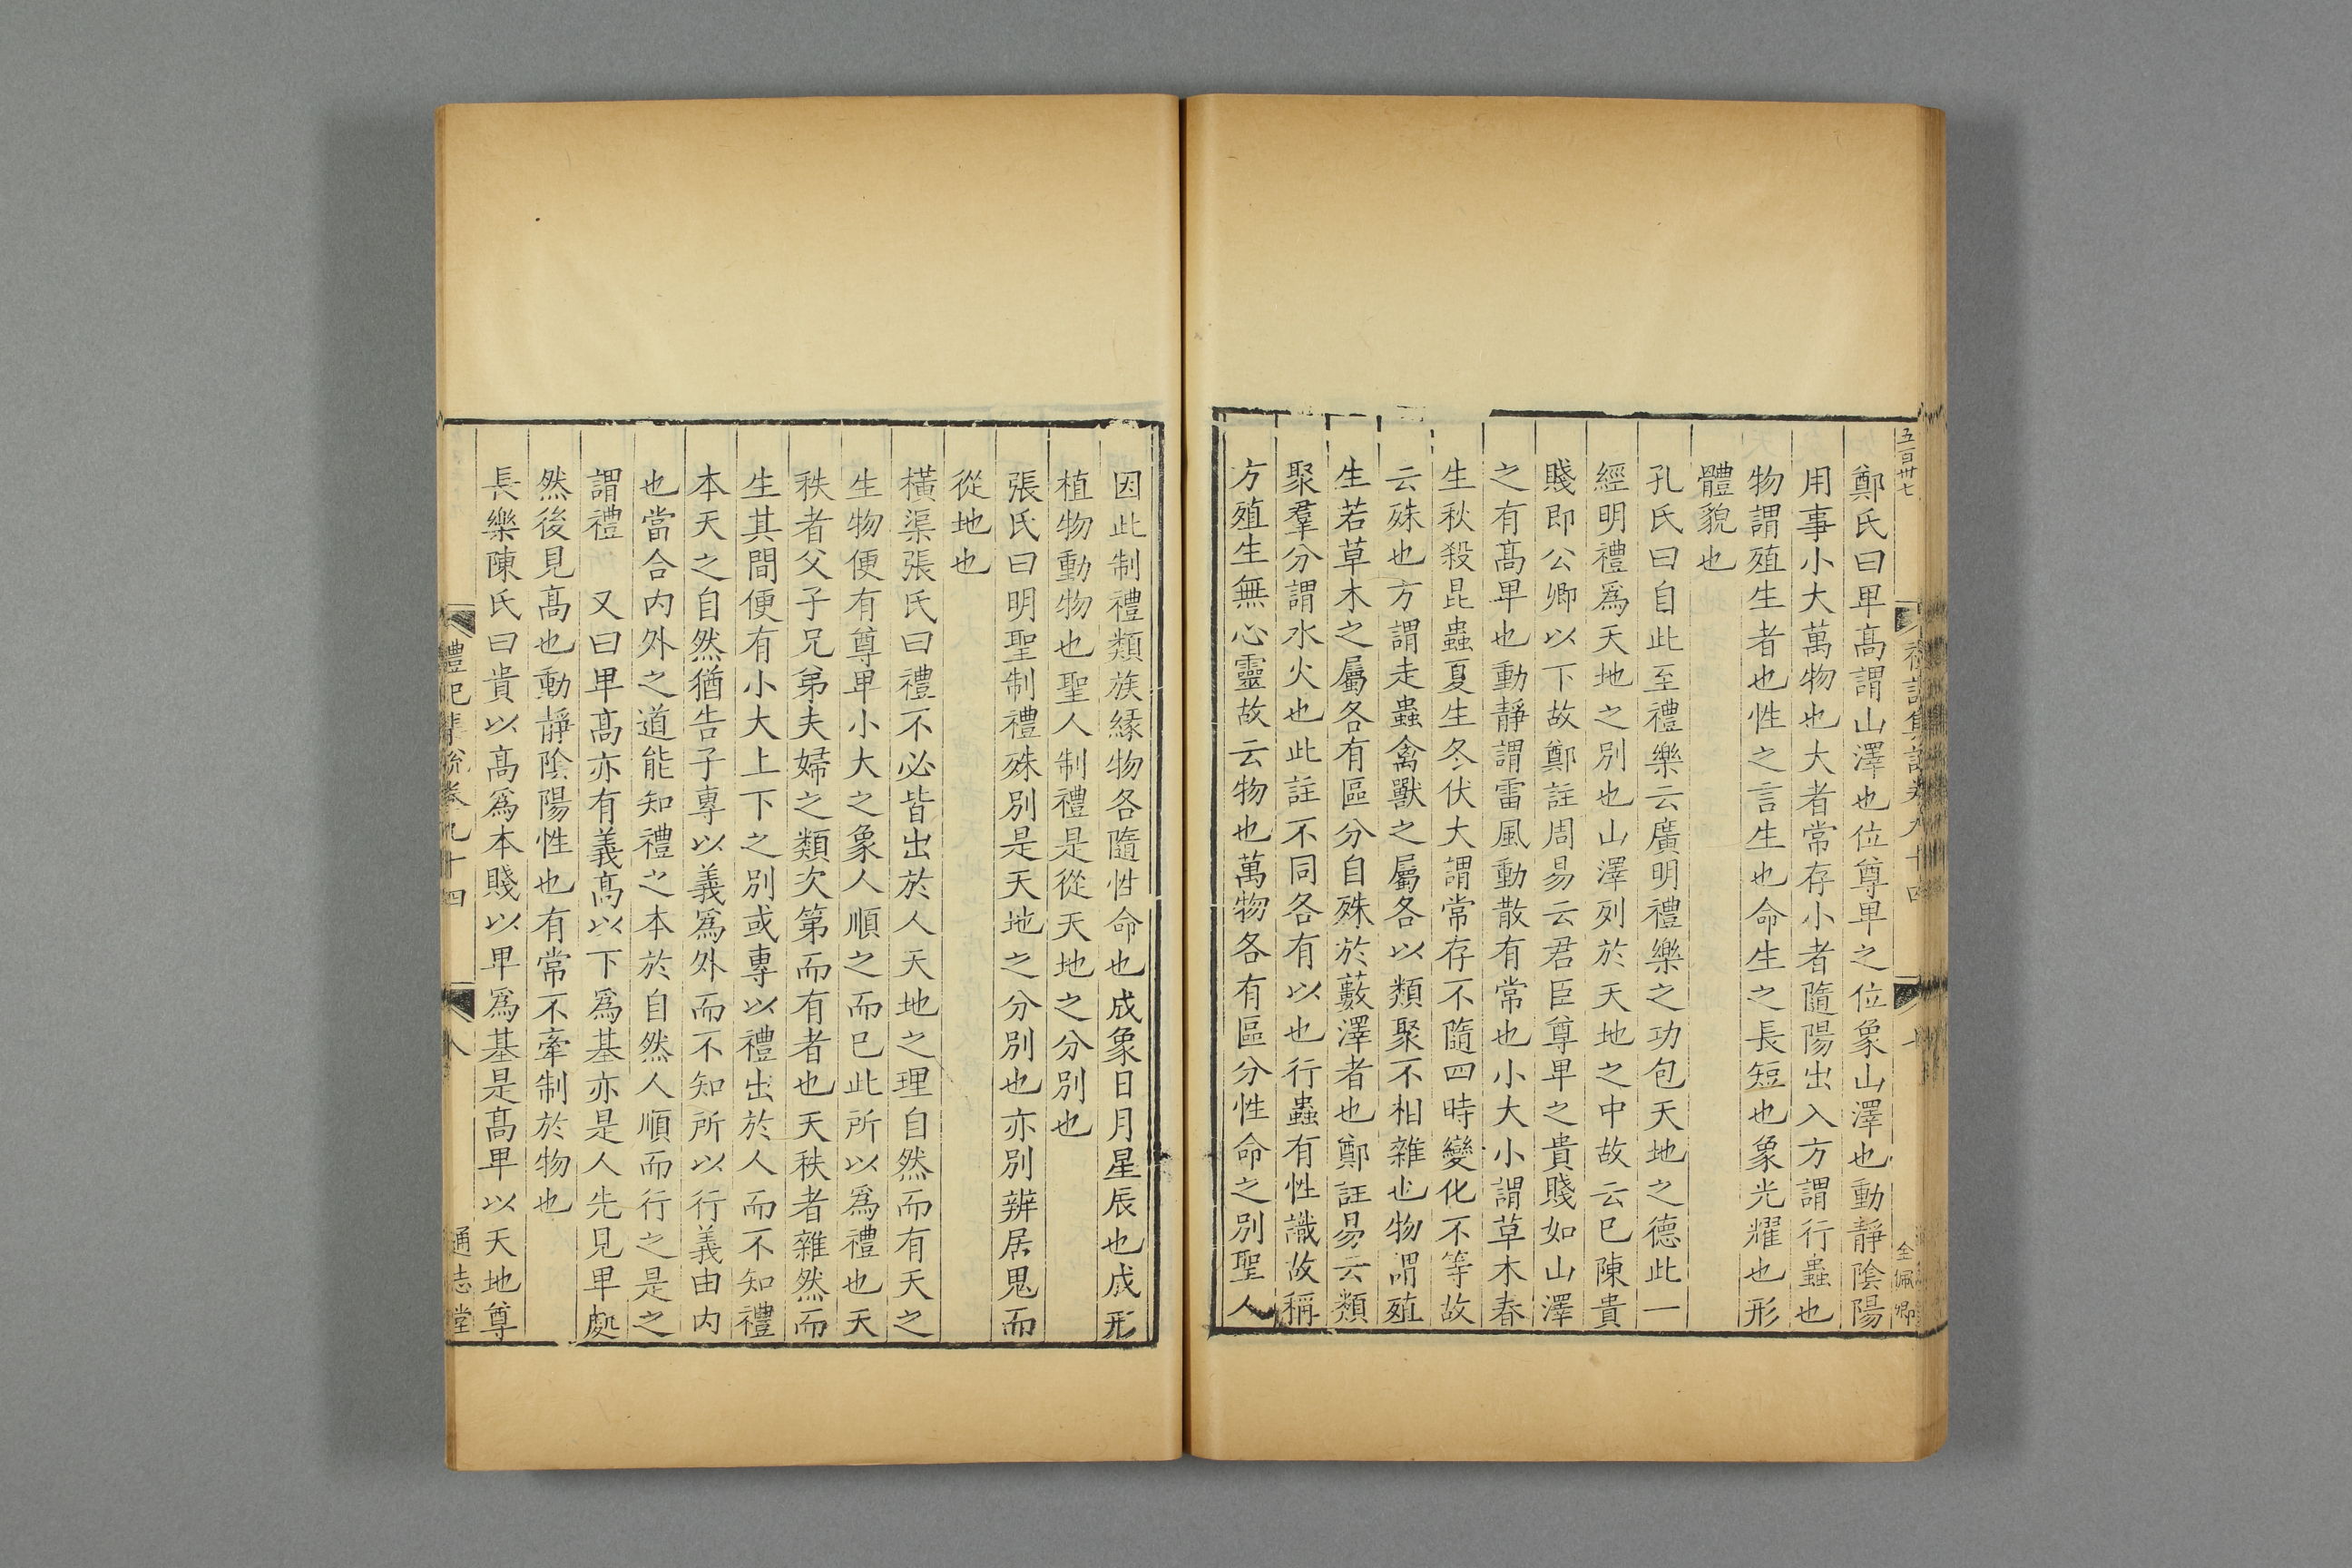 五百卅七
鄭氏曰卑髙謂山澤也位尊卑之位象山澤也動靜陰陽
用事小大萬物也大者常存小者隨陽出入方謂行蟲也
物謂殖生者也性之言生也命生之長短也象光耀也形
體貌也
孔氏曰自此至禮樂云廣明禮樂之功包天地之德此一
經明禮爲天地之别也山澤列於天地之中故云已陳貴
賤即公卿以下故鄭註周易云君臣尊卑之貴賤如山澤
之有髙卑也動靜謂雷風動散有常也小大小謂草木春
生秋殺昆蟲夏生冬伏大謂常存不隨四時變化不等故
云殊也方謂走蟲禽獸之屬各以類聚不相雜也物謂殖
生若草木之屬各有區分自殊於藪澤者也鄭註易云類
聚羣分謂水火也此註不同各有以也行蟲有性識故稱
方殖生無心靈故云物也萬物各有區分性命之别聖人
全佩卿
因此制禮類族緣物各隨性命也成象日月星辰也成形
植物動物也聖人制禮是從天地之分别也
張氏曰明聖制禮殊别是天地之分别也亦别辨居鬼而
從地也
橫渠張氏曰禮不必皆出於人天地之理自然而有天之
生物便有尊卑小大之象人順之而已此所以爲禮也天
秩者父子兄弟夫婦之類次第而有者也天秩者雜然而
生其間便有小大上下之别或專以禮出於人而不知禮
本天之自然猶告子專以義爲外而不知所以行義由内
也當合内外之道能知禮之本於自然人順而行之是之
謂禮　又曰卑髙亦有義髙以下爲基亦是人先見卑處
然後見髙也動靜陰陽性也有常不牽制於物也
長樂陳氏曰貴以髙爲本賤以卑爲基是髙卑以天地尊
禮記集說卷九十四
八
通志堂